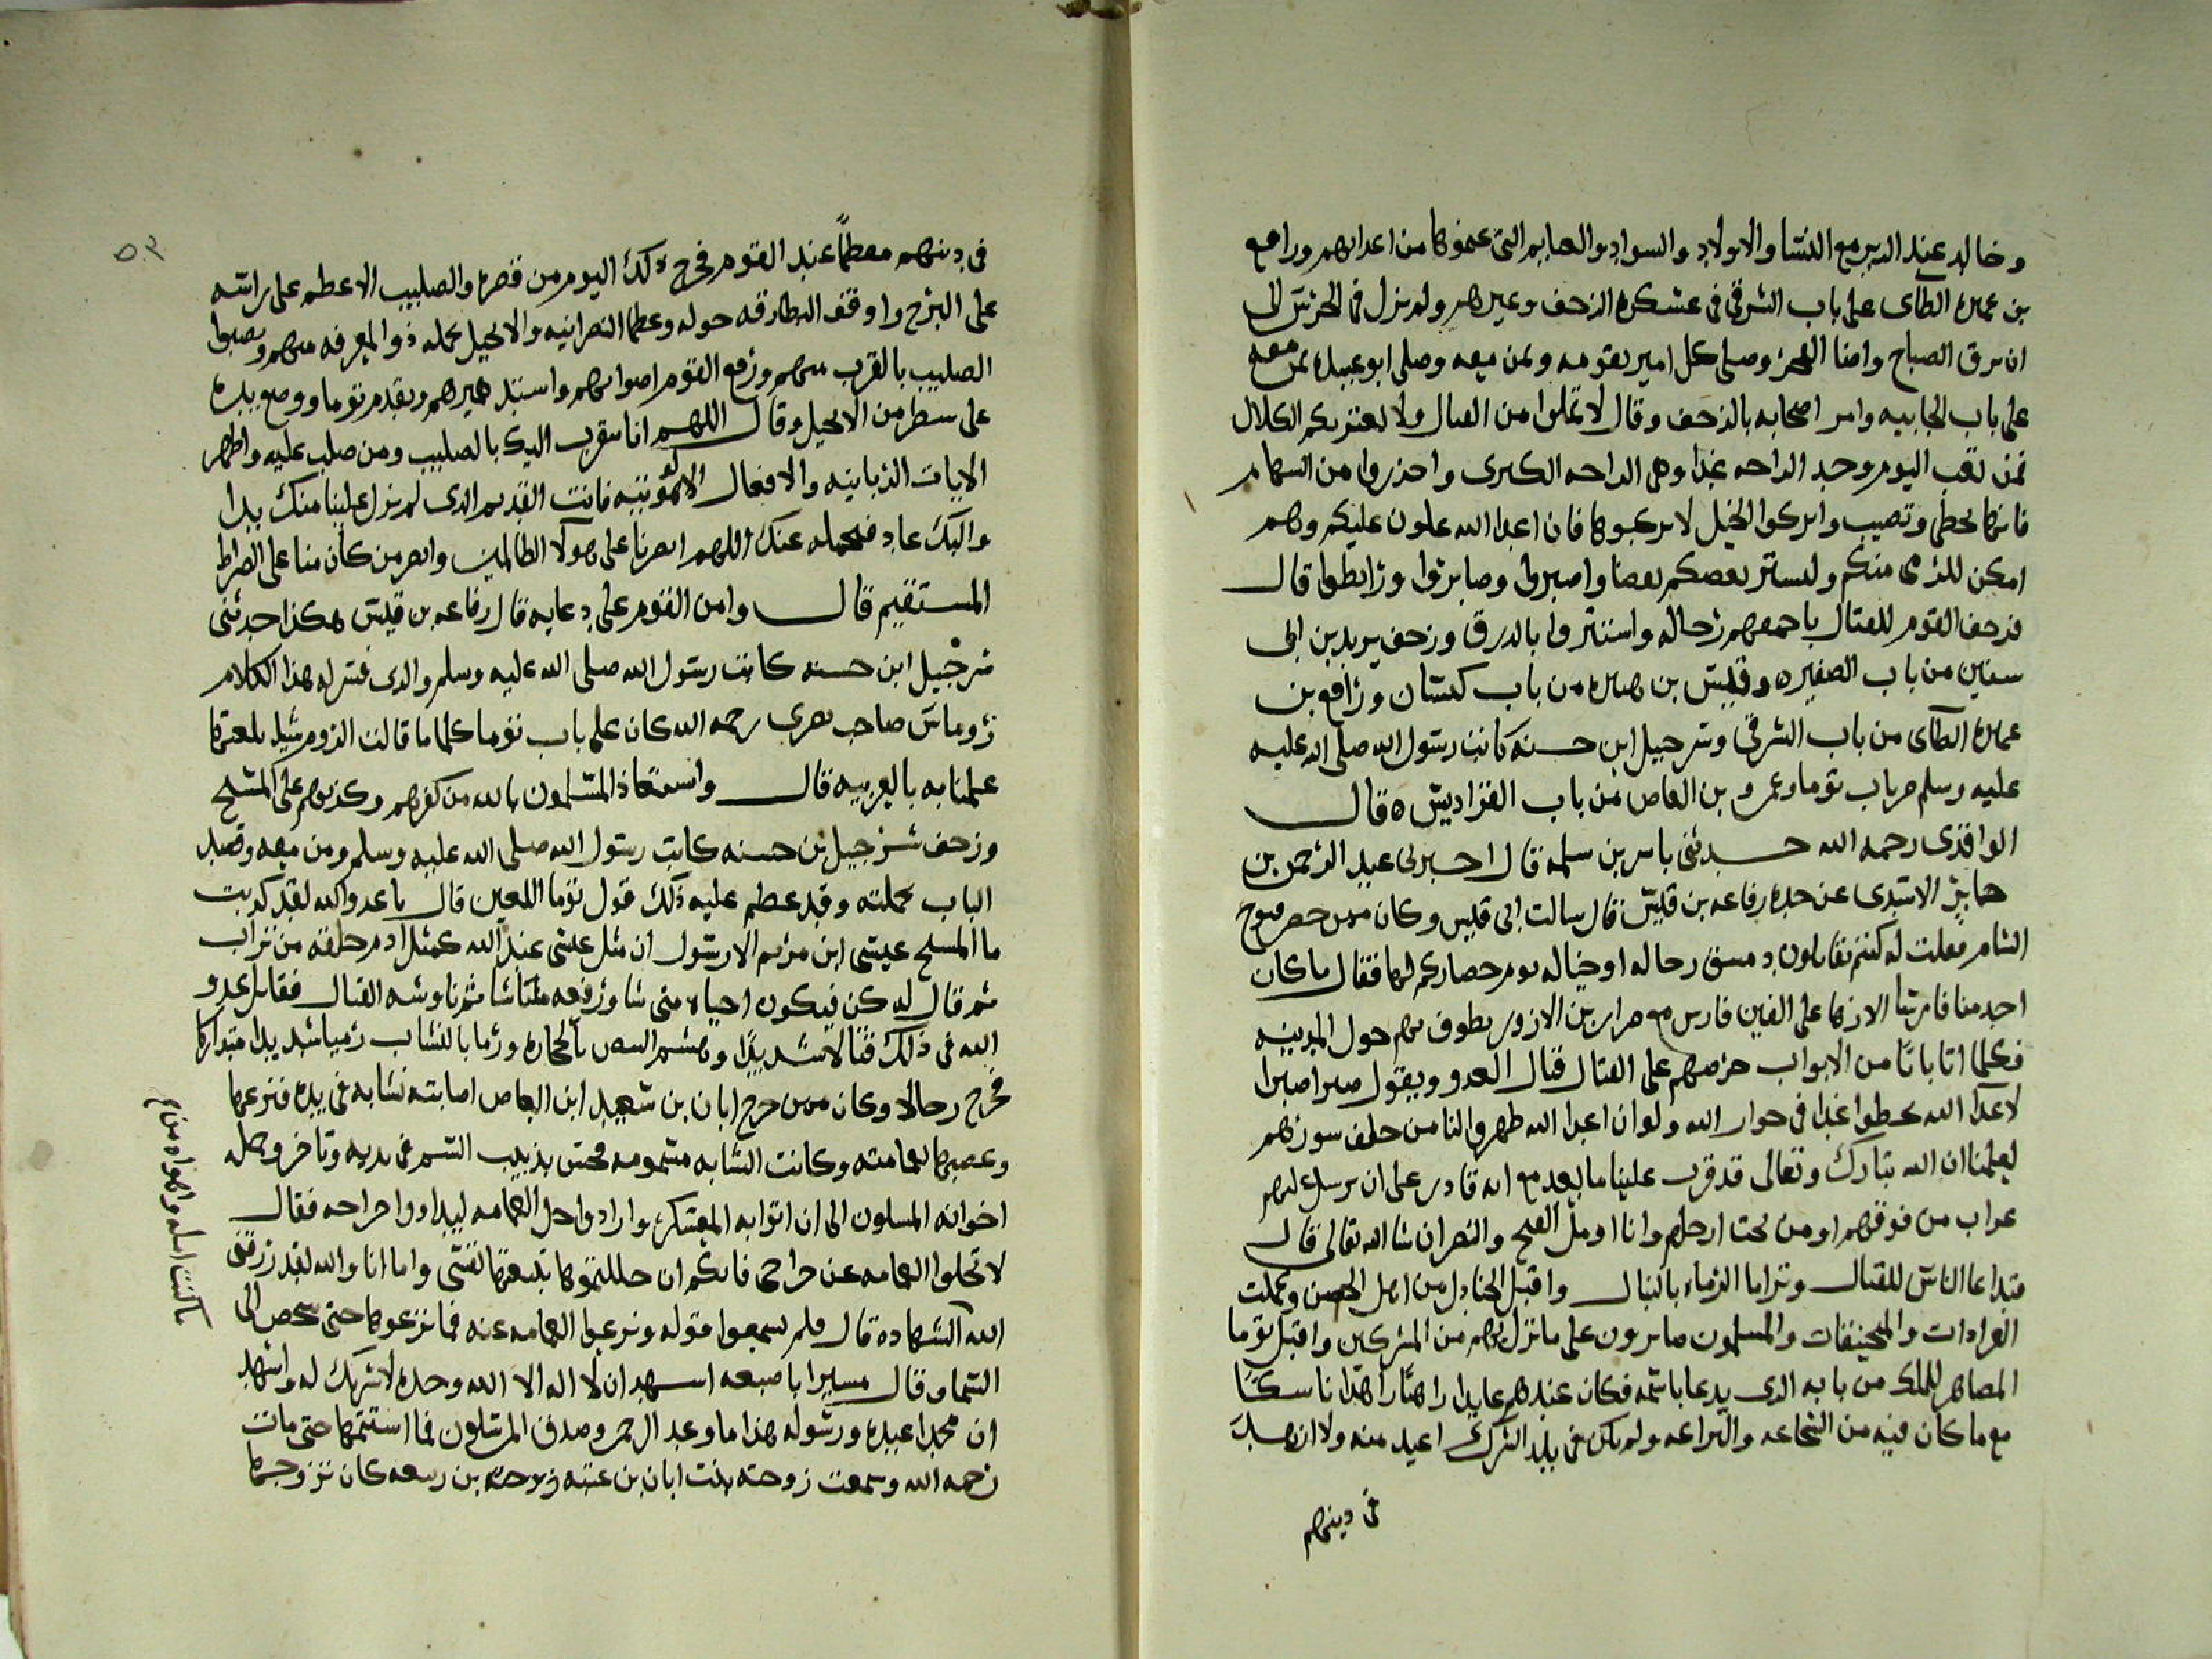 وخالد عند الدير مع النسا والاولاد والسواد والغنايم التى غنموها من اعدايهم ورافع
بن عميره الطآى على باب الشرقي فى عسكره الزحف وغيرهم ولم يزل فى الحرس الى
ان برق الصباح واضا الفجر وصلى كل امير بقومه ومن معه وصلى ابو عبيده بمن معه
على باب الجابيه وامر اصحابه بالزحف وقال لا تملوا من القتال ولا يعتريكم الكلال
فمن تعب اليوم وجد الراحه غدا وهى الراحه الكبرى واحذروا من السهام
فانها تخطى وتصيب واتركوا الخيل لا تركبوها فان اعدا الله علون عليكم وهم
امكن للرمى منكم وليستر بعضكم بعضا واصبروا وصابروا ورابطوا قال
فزحف القوم للقتال باجمعهم رجاله واستتروا بالدرق وزحف يزيد بن ابى
سفين من باب الصغيره وقيس بن هبيره من باب كيسان ورافع بن
عماره الطآى من باب الشرقى وشرجيل ابن حسنه كاتب رسول الله صلى الله عليه
عليه وسلم من باب توما وعمرو بن العاص من باب الفراديس ه قال
الواقدى رحمه الله حدثنى ياسر بن سلمه قال اخبرنى عبد الرحمن بن
جابر الاسدى عن جده رفاعه بن قيس قال سالت ابى قيس وكان ممن حضر فتوح
الشام فقلت له كنتم تقاتلون دمشق رجاله او خياله يوم حصاركم لها فقال ما كان
احد منا فارسا الا زها على الفين فارس مع ضرار بن الازور يطوف بهم حول المدينه
فكلما اتا بابا من الابواب حرضهم على القتال قتال العدو ويقول صبرا صبرا
لاعدآ الله تحظوا غدا فى جوار الله ولو ان اعدا الله ظهروا لنا من خلف سورهم
لعلمنا ان الله تبارك وتعالى قد قرب علينا ما يبعد مع انه قادر على ان يرسل عليهم
عذاب من فوقهم او من تحت ارجلهم وانا اومل الفتح والنصر ان شا الله تعالى قال
فتداعا الناس للقتال وتراما الرماه بالنبال واقبل الجنادل من اهل الحصن وعملت
العرادات والمنجنيقات والمسلمون صابرون على ما نزل بهم من المشركين واقبل توما
المصاهر للملك من بابه الذى يدعا باسمه فكان عندهم عابدا راهبا زاهدا ناسكا
مع ما كان فيه من الشجاعه والبراعه ولم يكن فى بلد الشرك اعبد منه ولا ازهد
فى دينهم
٥٣
فى دينهم معظما عند القوم فخرج ذلك اليوم من قصره والصليب الاعظم على راسه
على البرج واوقف البطارقه حوله وعظما النصرانيه والانجيل يحمله ذو المعرفه منهم ونصبوا
الصليب بالقرب منهم ورفع القوم اصواتهم واستند هيرهم وتقدم توما ووضع يده
على سطر من الانجيل وقال اللهم انا نتقرب اليك بالصليب ومن صلب عليه واظهر
الايات الربانيه والافعال اللاهوتيه فانت القديم الذى لم يزل علينا منك بدا
واليك عاد اللهم انصرنا على هولآ الظالمين وانصر من كان منا على الصراط
المستقيم قال وامن القوم على دعايه قال رفاعه بن قيس هكذا حدثنى
شرجيل ابن حسنه كاتب رسول الله صلى الله عليه وسلم والذى فسر له هذا الكلام
روماس صاحب بصرى رحمه الله كان على باب توما كلما ما قالت الروم شيا بلغتها
علمنا به بالعربيه قال واستعاذ المسلمون بالله من كفرهم وكذبهم على المسيح
وزحف شرجيل بن حسنه كاتب رسول الله صلى الله عليه وسلم ومن معه وقصد
الباب بحملته وقد عظم عليه ذلك قول توما اللعين قال يا عدو الله لقد كذبت
ما المسيح عيسى ابن مريم الا رسول ان مثل عيسى عند الله كمثل ادم خلقه من تراب
ثم قال له كن فيكون احياه متى شا ورفعه متى شا ثم ناوشه القتال فقاتل عدو
الله فى ذلك قتالا شديدا وهشم الناس بالحجاره ورما بالنشاب رميا شديدا متداركا
فجرح رجالا وكان ممن جرح ابان بن سعيد ابن العاص اصابته نشابه فى يده فنزعها
وعصبها بعمامته وكانت النشابه مسمومه فحس بدبيب السم فى بدنه وتاخر وحمله
اخوانه المسلمون الى ان اتوا به المعسكر وارادوا حل العمامه ليداووا جراحه فقال
لا تحلوا العمامه عن جراحى فانكم ان حللتموها تبعتها نفسى واما انا والله لقد رزقنى
الله الشهاده قال فلم يسمعوا قوله ونزعوا العمامه عنه فما نزعوها حتى شخص الى
السما وقال مشيرا باصبعه اشهد ان لا اله الا الله وحده لا شريك له واشهد
ان محمدا عبده ورسوله هذا ما وعد الرحمن وصدق المرسلون فما استتمها حتى مات
رحمه الله وسمعت زوجته بنت ابان بن عتبه بن ربيعه كان تزوجها
ما كنت امله واهواه من